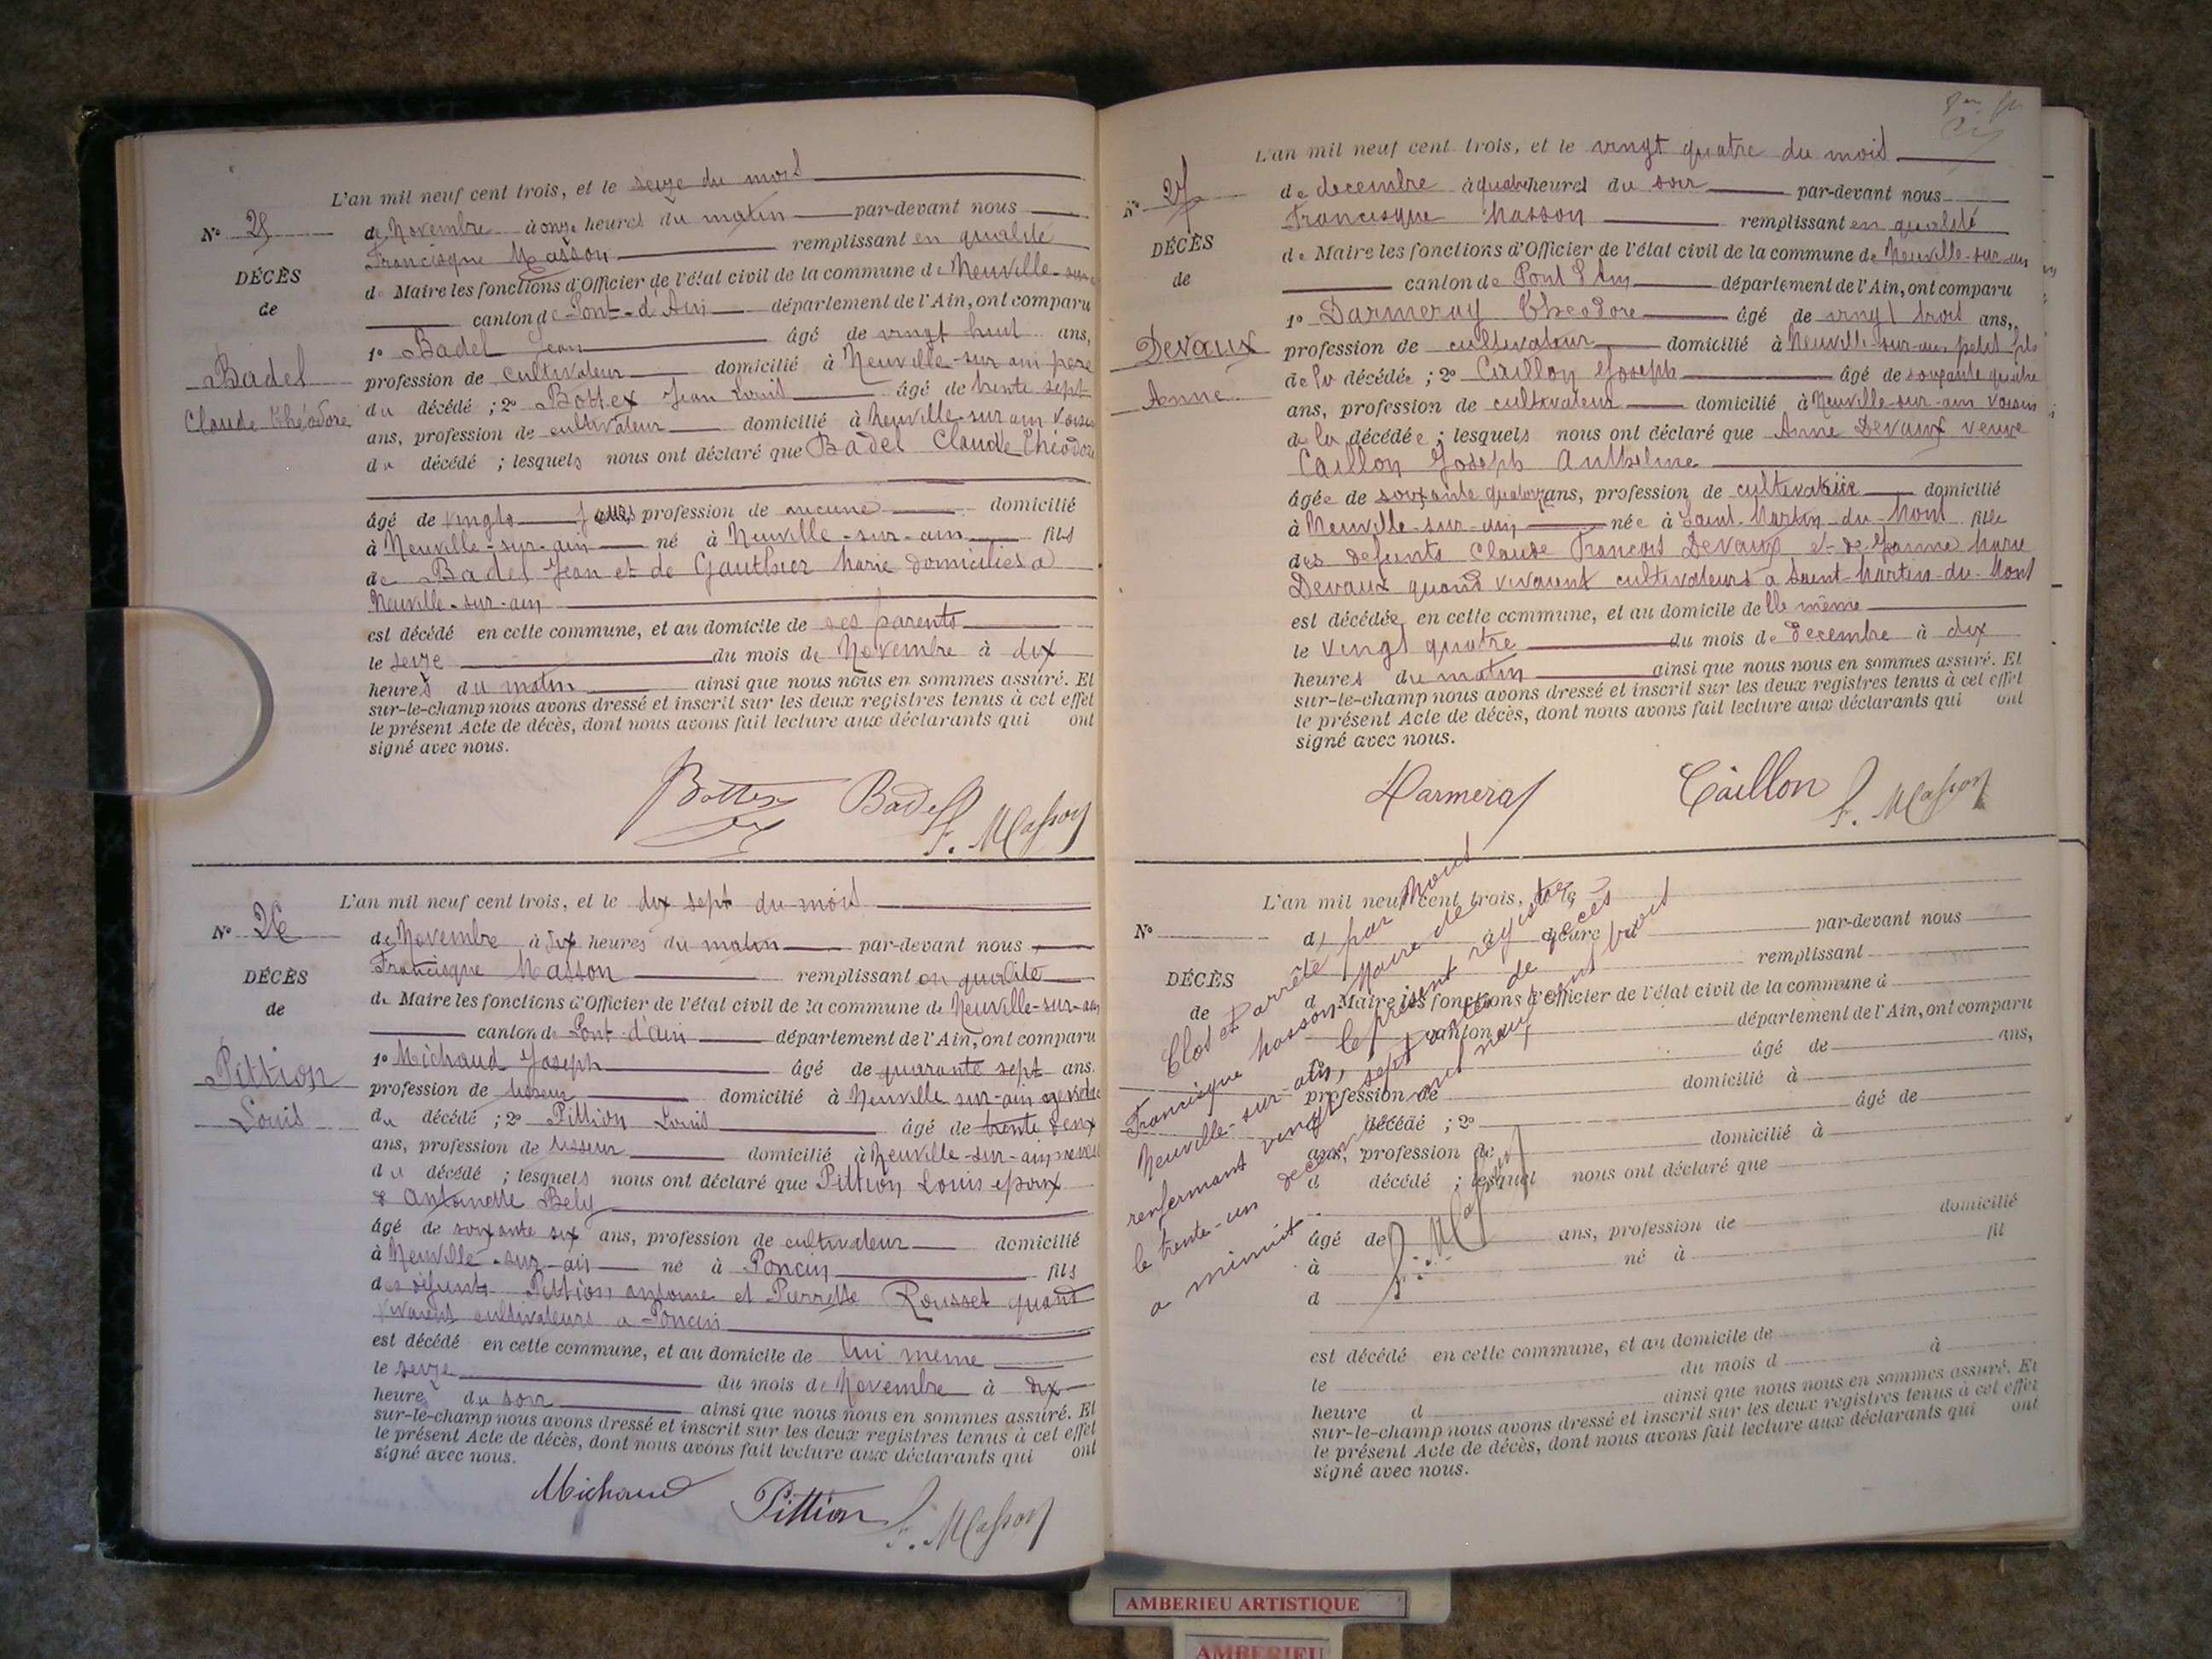 L'an mil neuf cent trois, et le seize du mois
N° 25
de Novembre à onze heures du matin par-devant nous
Francisque Masson remplissant en qualité
DÉCÈS
de Maire les fonctions d'Officier de l'état civil de la commune de Neuville-sur-
de
canton de Pont-d'Ain département de l'Ain, ont comparu
1° Badel Jean âgé de vingt huit ans,
Badel
profession de cultivateur domicilié à Neuville-sur-ain père
Claude Théodore
du décédé ; 2° Bottex Jean Louis âgé de trente sept
ans, profession de cultivateur domicilié à Neuville-sur-ain voisin
du décédé ; lesquels nous ont déclaré que Badel Claude Théodore
âgé de vingts jours, profession de aucune domicilié
à Neuville-sur-ain né à Neuville-sur-ain fils
de Badel Jean et de Gauthier Marie domiciliés a
Neuville-sur-ain
est décédé en cette commune, et au domicile de ses parents
le seize du mois de Novembre à dix
heures du matin ainsi que nous nous en sommes assuré. Et
sur-le-champ nous avons dressé et inscrit sur les deux registres tenus à cet effet
le présent Acte de décès, dont nous avons fait lecture aux déclarants qui ont
signé avec nous.
Bottex Badel F. Masson
L'an mil neuf cent trois, et le dix sept du mois
N° 26
de Novembre à dix heures du matin par-devant nous
Francisque Masson remplissant en qualité
DÉCÈS
de Maire les fonctions d'Officier de l'état civil de la commune de Neuville-sur-ain
de
canton de Pont-d'ain département de l'Ain, ont comparu
1° Michaud Joseph âgé de quarante sept ans.
Pittion
profession de tisseur domicilié à Neuville-sur-ain gendre
Louis
du décédé ; 2° Pittion Louis âgé de trente deux
ans, profession de tisseur domicilié à Neuville-sur-ain neveu
du décédé ; lesquels nous ont déclaré que Pittion Louis epoux
d Antoinette Bely
âgé de soixante six ans, profession de cultivateur domicilié
à Neuville-sur-ain né à Poncin fils
des défunts Pittion antoine et Pierrette Rousset quand
vivaient cultivateurs a Poncin
est décédé en cette commune, et au domicile de lui meme
le seize du mois de Novembre à dix
heures du soir ainsi que nous nous en sommes assuré. Et
sur-le-champ nous avons dressé et inscrit sur les deux registres tenus à cet effet
le présent Acte de décès, dont nous avons fait lecture aux déclarants qui ont
signé avec nous.
Michaud Pittion F. Masson
L'an mil neuf cent trois, et le vingt quatre du mois
N° 27
de decembre à quatre heures du soir par-devant nous
Francisque Masson remplissant en qualité
DÉCÈS
de Maire les fonctions d'Officier de l'état civil de la commune de Neuville-sur-ain
de
canton de Pont d'Ain département de l'Ain, ont comparu
1° Darmeray Théodore âgé de vingt trois ans,
Devaux
profession de cultivateur domicilié à Neuville-sur-ain petit fils
Anne
de la décédée ; 2° Caillon Joseph âgé de soixante quatre
ans, profession de cultivateur domicilié à Neuville-sur-ain voisin
de la décédée ; lesquels nous ont déclaré que Anne Devaux veuve
Caillon Joseph Anthelme
âgée de soixante quatorze ans, profession de cultivatrice domicilié
à Neuville-sur-ain née à Saint-Martin-du-Mont fille
des defunts Claude François Devaux et de Jeanne Marie
Devaux quand vivaient cultivateurs a Saint-Martin-du-Mont
est décédée en cette commune, et au domicile de lle même
le vingt quatre du mois de Decembre à dix
heures du matin ainsi que nous nous en sommes assuré. Et
sur-le-champ nous avons dressé et inscrit sur les deux registres tenus à cet effet
le présent Acte de décès, dont nous avons fait lecture aux déclarants qui ont
signé avec nous.
Darmeray Caillon F. Masson
L'an mil neuf cent trois, et le
N° d à heure par-devant nous
remplissant
DÉCÈS
d Maire les fonctions d'Officier de l'état civil de la commune d
de
canton département de l'Ain, ont comparu
âgé de ans,
profession de domicilié à
décédé ; 2° âgé de
ans, profession de domicilié à
d décédé ; lesquel nous ont déclaré que
âgé de ans, profession de domicilié
à né à fil
d
est décédé en cette commune, et au domicile de
le du mois d à
heure d ainsi que nous nous en sommes assuré. Et
sur-le-champ nous avons dressé et inscrit sur les deux registres tenus à cet effet
le présent Acte de décès, dont nous avons fait lecture aux déclarants qui ont
signé avec nous.
Clos et arrêté par nous
Francisque Masson Maire de
Neuville-sur-ain, le présent registre
renfermant vingt sept actes de décès
le trente-un decembre mil neuf cent trois
a minuit
F. Masson
AMBERIEU ARTISTIQUE
AMBERIEU